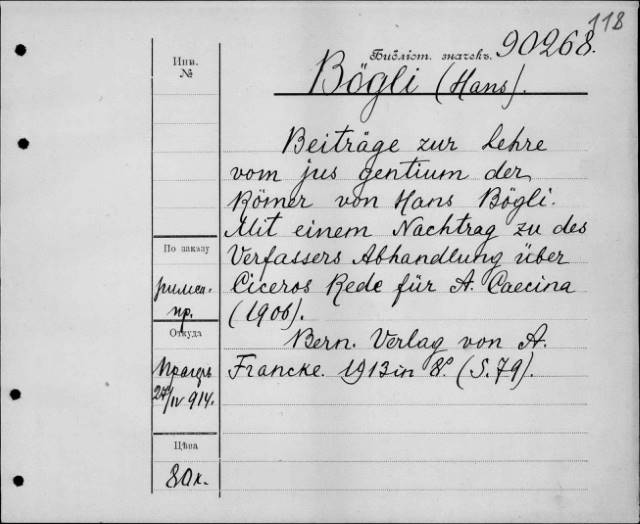 118
Библіот. значекъ. 90268.
Bögli (Hans).
Инв.
№
Beiträge zur Lehre
vom jus gentium der
Römer von Hans Bögli.
Mit einem Nachtrag zu des
Verfassers Abhandlung über
Ciceros Rede für A. Caecina
(1906).
Bern. Verlag von A.
Francke. 1913 in 8°. (S. 79).
По заказу
римск.
пр.
Откуда
27/IV 914.
Цѣна
80к.